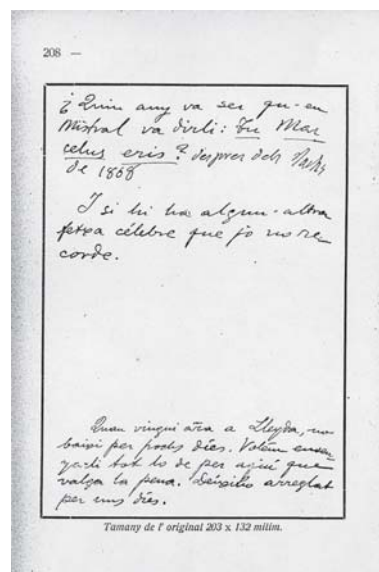 208 —
¿Quin any va ser qu-en
Mistral va dirli: Tu Mar
celus eris? despres dels Jochs
de 1868
I si hi ha algun-altra
fetxa célebre que jo no re-
corde.
Quan vingui ara a Lleyda, no
baixi per pochs díes. Volém ense
yarli tot lo de per aquí que
valga la pena. Deixiho arreglat
per uns díes.
Tamany de l' original 203 x 132 milim.